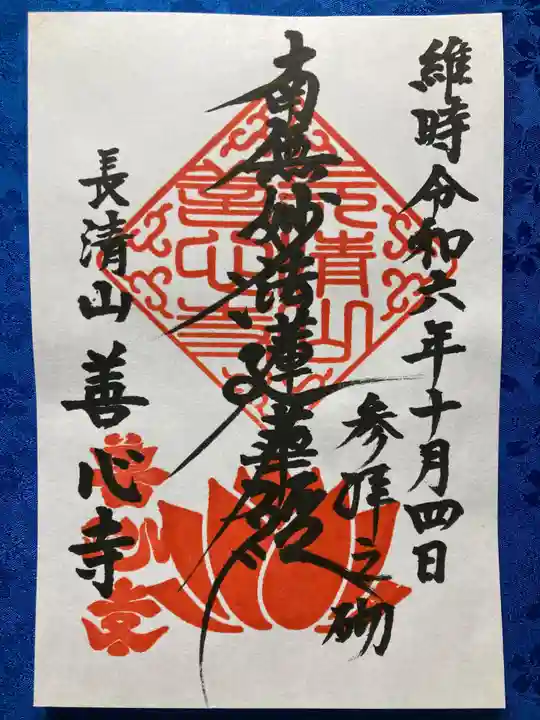 維時令和六年十月四日
参拝之砌
南無妙法蓮華経
長清山 善心寺
長清山
善心寺